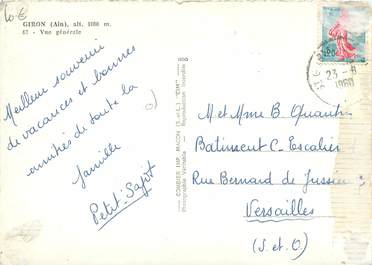 10€
GIRON (Ain), alt. 1000 m.
67 - Vue générale
Meilleur souvenir
de vacances et bonnes
amitiés de toute la
famille
Petit-
COMBIER IMP. MACON (S.-et-L.) "CIM"
Photographie Véritable - Reproduction interdite
23 - 8
1960
M et Mme B Quantin
Batiment C - Escalier
Rue Bernard de Jussieu
Versailles
(S. et O)